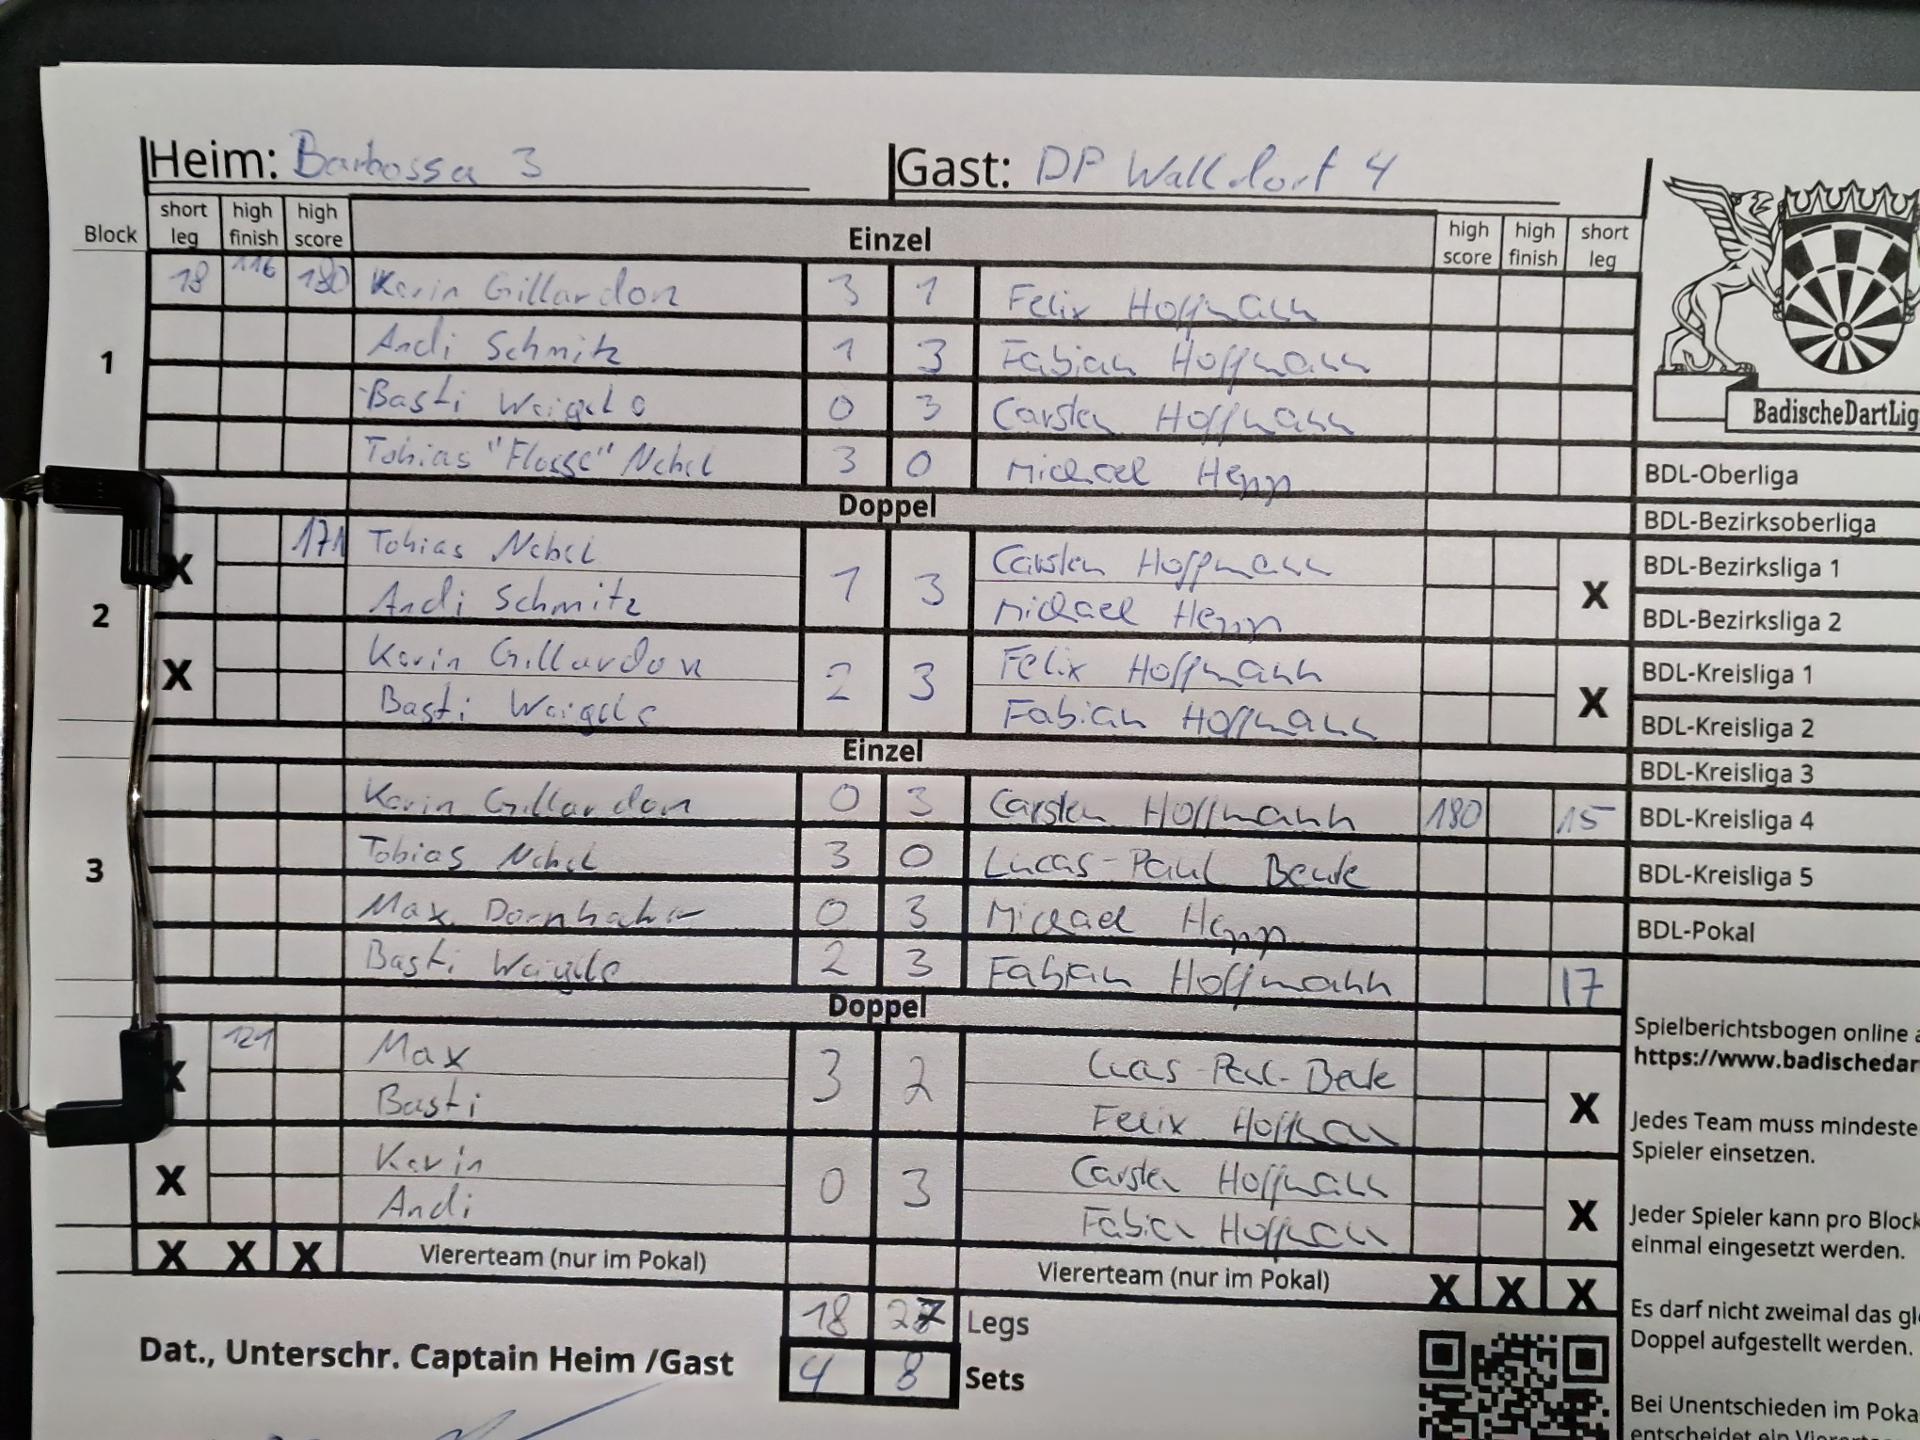 Heim: Barbossa 3 Gast: DP Walldorf 4
Block short leg high finish high score Einzel high score high finish short leg
1
18 116 180 Kevin Gillardon 3 1 Felix Hoffmann
Andi Schmitz 1 3 Fabian Hoffmann
Basti Weigele 0 3 Carsten Hoffmann
Tobias "Flosse" Nebel 3 0 Michael Hepp
Doppel
2
X 171 Tobias Nebel 1 3 Carsten Hoffmann X
Andi Schmitz Michael Hepp
X Kevin Gillardon 2 3 Felix Hoffmann X
Basti Weigele Fabian Hoffmann
Einzel
3
Kevin Gillardon 0 3 Carsten Hoffmann 180 15
Tobias Nebel 3 0 Lucas-Paul Beute
Max 0 3 Michael Hepp
Basti Weigele 2 3 Fabian Hoffmann 17
Doppel
X 121 Max 3 2 Lucas-Paul-Beute X
Basti Felix Hoffmann
X Kevin 0 3 Carsten Hoffmann X
Andi Fabian Hoffmann
X X X Viererteam (nur im Pokal) Viererteam (nur im Pokal) X X X
18 27 Legs
4 8 Sets
Dat., Unterschr. Captain Heim /Gast
BadischeDartLig
BDL-Oberliga
BDL-Bezirksoberliga
BDL-Bezirksliga 1
BDL-Bezirksliga 2
BDL-Kreisliga 1
BDL-Kreisliga 2
BDL-Kreisliga 3
BDL-Kreisliga 4
BDL-Kreisliga 5
BDL-Pokal
Spielberichtsbogen online a
https://www.badischedar
Jedes Team muss mindeste
Spieler einsetzen.
Jeder Spieler kann pro Block
einmal eingesetzt werden.
Es darf nicht zweimal das gl
Doppel aufgestellt werden.
Bei Unentschieden im Poka
entscheidet ein Viererteam